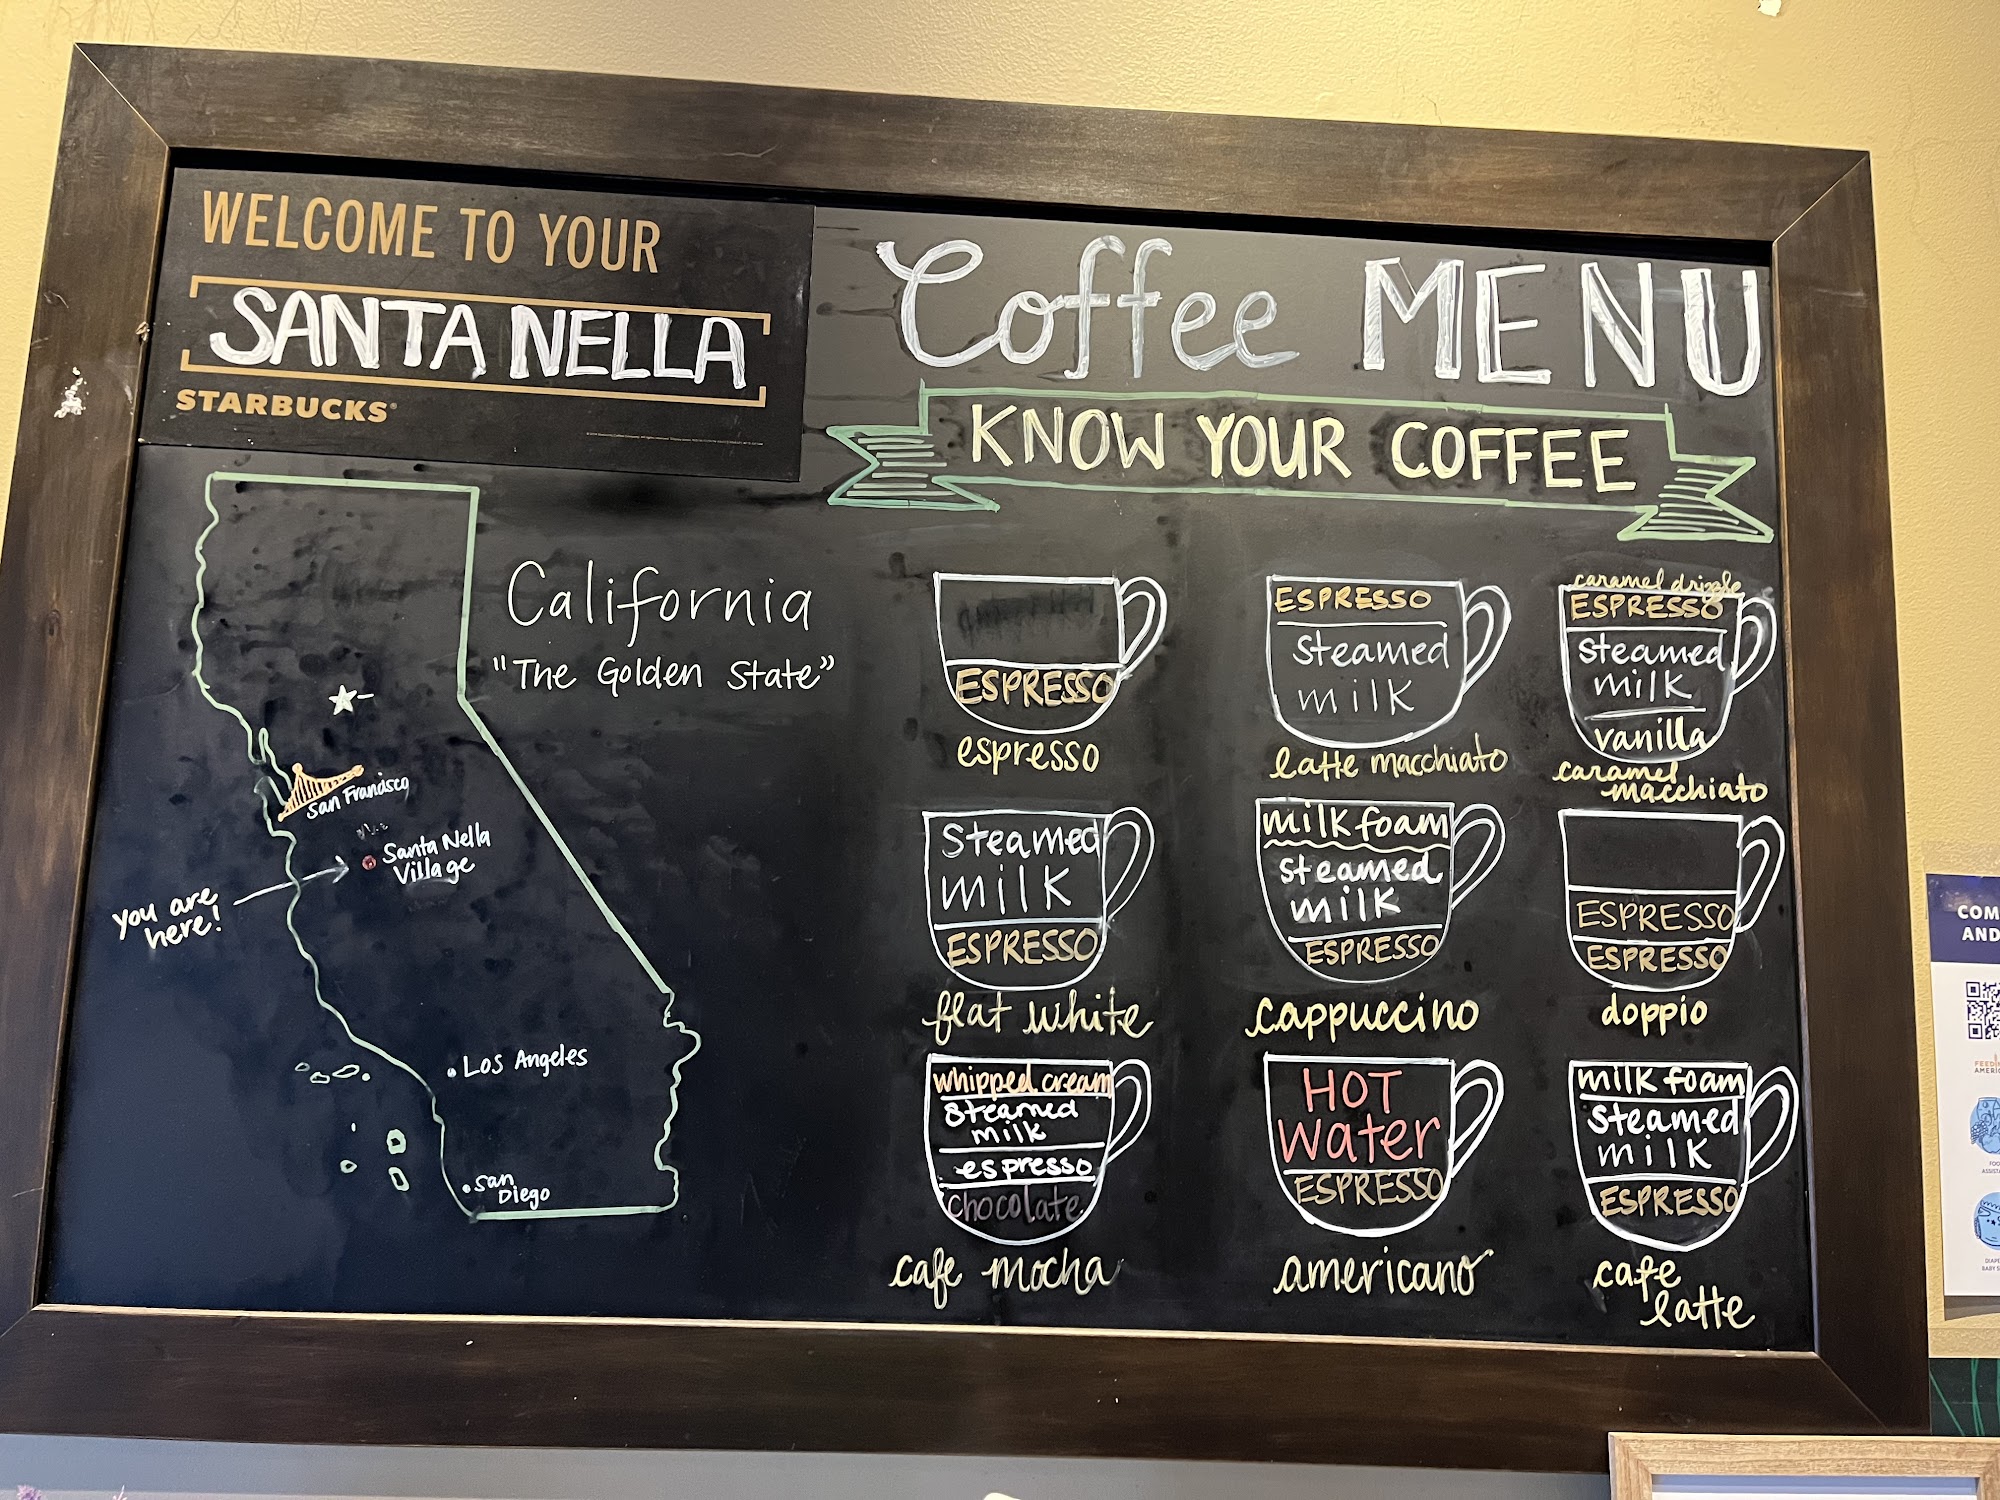 WELCOME TO YOUR
SANTA NELLA
STARBUCKS
California
"The Golden State"
San Francisco
Santa Nella
Village
you are
here!
Los Angeles
San
Diego
Coffee MENU
KNOW YOUR COFFEE
ESPRESSO
espresso
ESPRESSO
steamed
milk
latte macchiato
caramel drizzle
ESPRESSO
steamed
milk
vanilla
caramel
macchiato
steamed
milk
ESPRESSO
flat white
milk foam
steamed
milk
ESPRESSO
cappuccino
ESPRESSO
ESPRESSO
doppio
whipped cream
steamed
milk
espresso
chocolate
cafe mocha
HOT
water
ESPRESSO
americano
milk foam
steamed
milk
ESPRESSO
cafe
latte
COM
AND